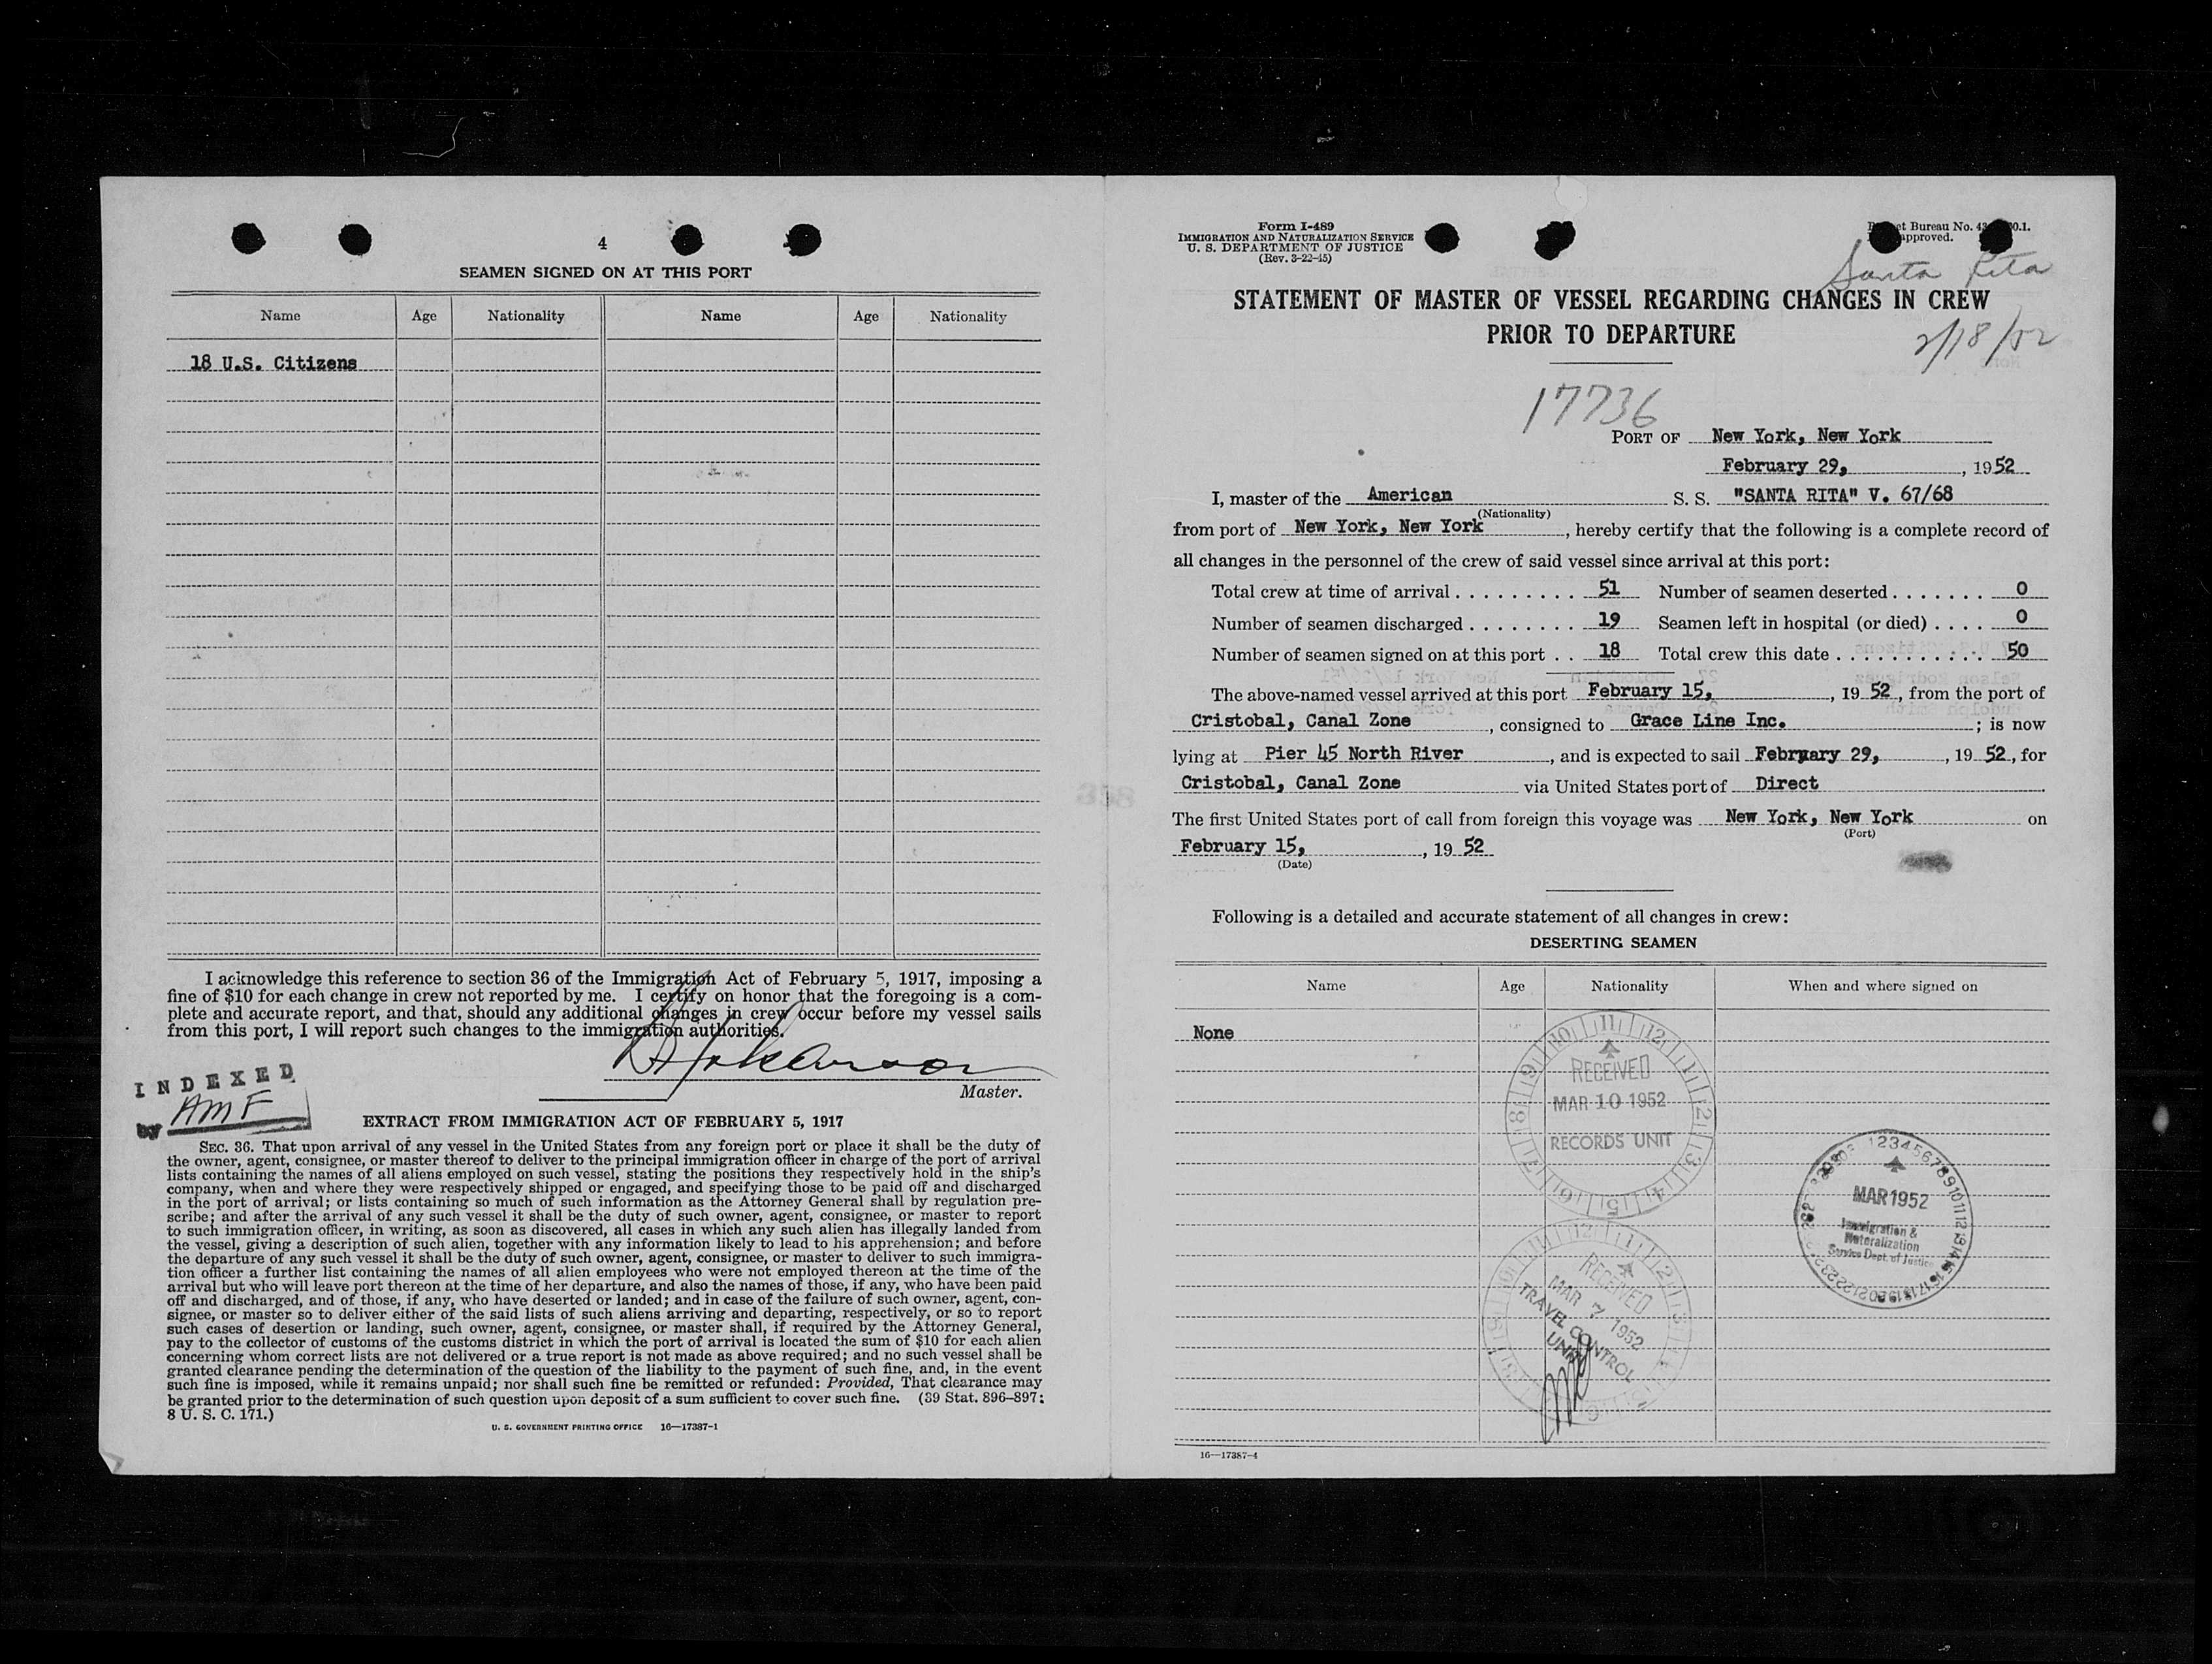 4
SEAMEN SIGNED ON AT THIS PORT
Name Age Nationality Name Age Nationality
18 U.S. Citizens
I acknowledge this reference to section 36 of the Immigration Act of February 5, 1917, imposing a
fine of $10 for each change in crew not reported by me. I certify on honor that the foregoing is a com-
plete and accurate report, and that, should any additional changes in crew occur before my vessel sails
from this port, I will report such changes to the immigration authorities.
Master.
INDEXED
by AMF
EXTRACT FROM IMMIGRATION ACT OF FEBRUARY 5, 1917
SEC. 36. That upon arrival of any vessel in the United States from any foreign port or place it shall be the duty of
the owner, agent, consignee, or master thereof to deliver to the principal immigration officer in charge of the port of arrival
lists containing the names of all aliens employed on such vessel, stating the positions they respectively hold in the ship's
company, when and where they were respectively shipped or engaged, and specifying those to be paid off and discharged
in the port of arrival; or lists containing so much of such information as the Attorney General shall by regulation pre-
scribe; and after the arrival of any such vessel it shall be the duty of such owner, agent, consignee, or master to report
to such immigration officer, in writing, as soon as discovered, all cases in which any such alien has illegally landed from
the vessel, giving a description of such alien, together with any information likely to lead to his apprehension; and before
the departure of any such vessel it shall be the duty of such owner, agent, consignee, or master to deliver to such immigra-
tion officer a further list containing the names of all alien employees who were not employed thereon at the time of the
arrival but who will leave port thereon at the time of her departure, and also the names of those, if any, who have been paid
off and discharged, and of those, if any, who have deserted or landed; and in case of the failure of such owner, agent, con-
signee, or master so to deliver either of the said lists of such aliens arriving and departing, respectively, or so to report
such cases of desertion or landing, such owner, agent, consignee, or master shall, if required by the Attorney General,
pay to the collector of customs of the customs district in which the port of arrival is located the sum of $10 for each alien
concerning whom correct lists are not delivered or a true report is not made as above required; and no such vessel shall be
granted clearance pending the determination of the question of the liability to the payment of such fine, and, in the event
such fine is imposed, while it remains unpaid; nor shall such fine be remitted or refunded: Provided, That clearance may
be granted prior to the determination of such question upon deposit of a sum sufficient to cover such fine. (39 Stat. 896-897;
8 U. S. C. 171.)
U. S. GOVERNMENT PRINTING OFFICE 16—17387-1
Form I-489
IMMIGRATION AND NATURALIZATION SERVICE
U. S. DEPARTMENT OF JUSTICE
(Rev. 3-22-45)
Bureau No.
approved.
Santa Rita
STATEMENT OF MASTER OF VESSEL REGARDING CHANGES IN CREW
PRIOR TO DEPARTURE
2/18/52
17736
PORT OF New York, New York
February 29, , 1952
I, master of the American S. S. "SANTA RITA" V. 67/68
(Nationality)
from port of New York, New York , hereby certify that the following is a complete record of
all changes in the personnel of the crew of said vessel since arrival at this port:
Total crew at time of arrival . . . . . . . . . 51 Number of seamen deserted . . . . . . . 0
Number of seamen discharged . . . . . . . . 19 Seamen left in hospital (or died) . . . . 0
Number of seamen signed on at this port . . 18 Total crew this date . . . . . . . . . . . 50
The above-named vessel arrived at this port February 15, , 19 52, from the port of
Cristobal, Canal Zone , consigned to Grace Line Inc. ; is now
lying at Pier 45 North River , and is expected to sail February 29, , 19 52, for
Cristobal, Canal Zone via United States port of Direct
The first United States port of call from foreign this voyage was New York, New York on
(Port)
February 15, , 19 52
(Date)
Following is a detailed and accurate statement of all changes in crew:
DESERTING SEAMEN
Name Age Nationality When and where signed on
None
RECEIVED
MAR 10 1952
RECORDS UNIT
MAR 1952
Immigration &
Naturalization
Service Dept. of Justice
RECEIVED
MAR 7 1952
TRAVEL CONTROL
UNIT
16—17387-4